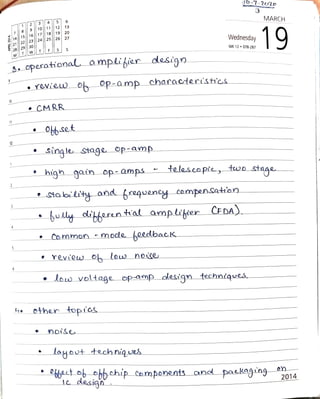 10-7-2020
3
MARCH
Wednesday
19
3. operational amplifier design
• review of op-amp characteristics
• CMRR
• Offset
• single stage op-amp
• high gain op-amps - telescopic, two stage
• stability and frequency compensation
• fully differential amplifier (FDA).
• common-mode feedback
• review of low noise
• low voltage op-amp design techniques
4. other topics
• noise
• layout techniques
• effect of off chip components and packaging on
IC design.
2014